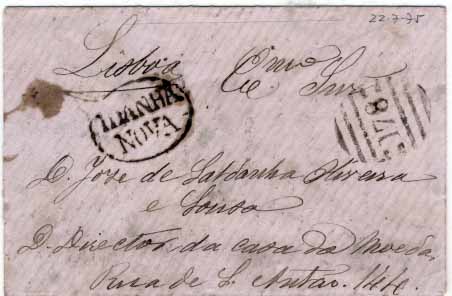 22-7-75
Lisboa
Exmo Snr
IDANHA
NOVA
178
D. José de Saldanha Oliveira
e Sousa
D. Director da casa da Moeda,
Rua de S. Antão. 144.